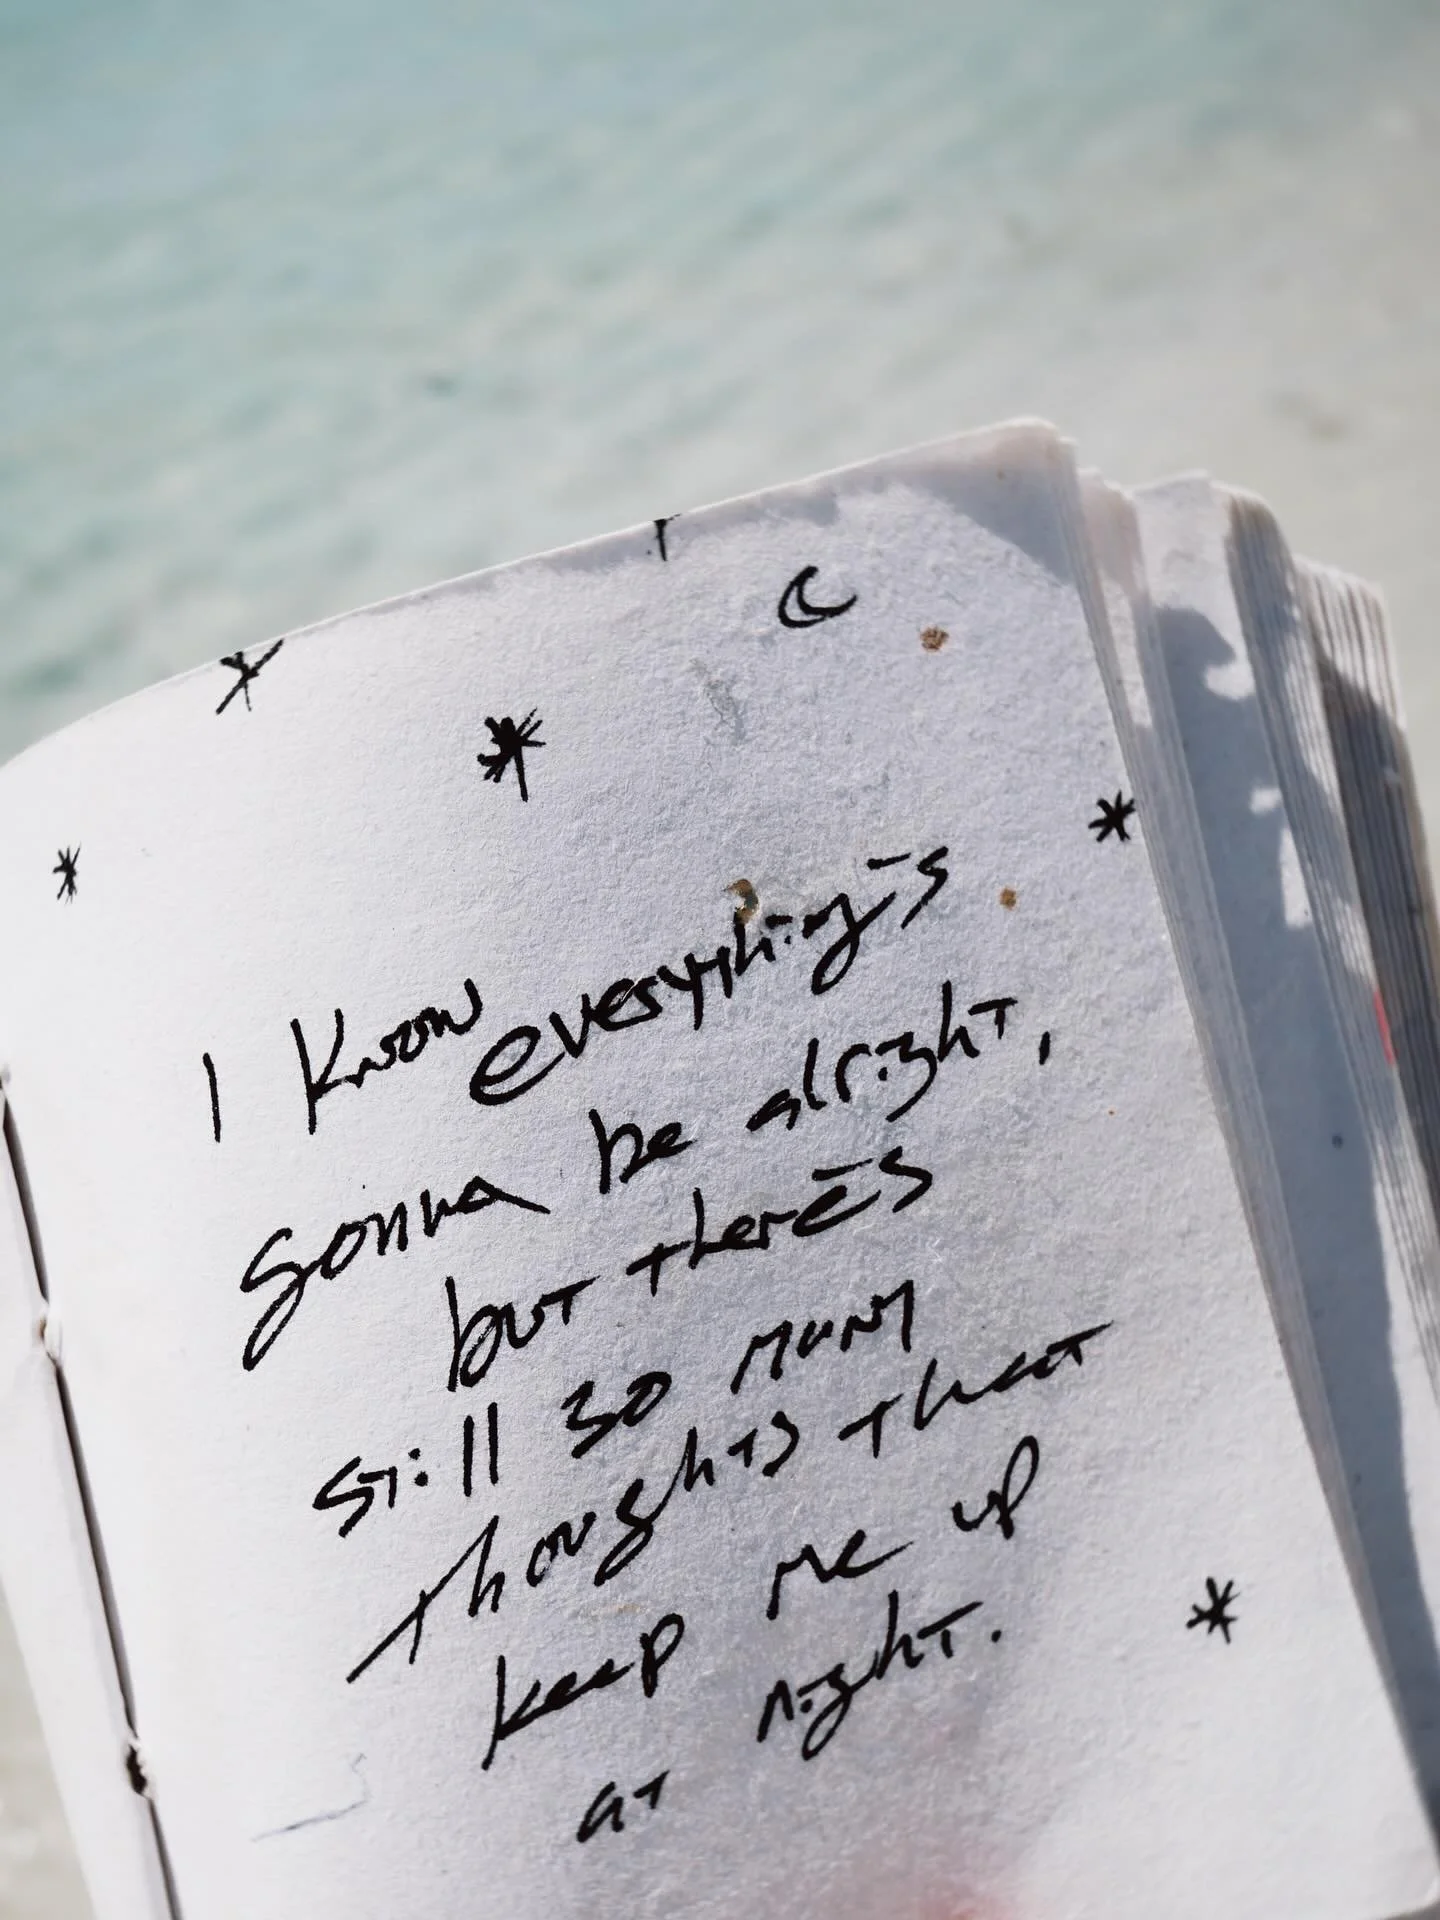 I know everything's
gonna be alright,
but there's
still so many
thoughts that
keep me up
at night.